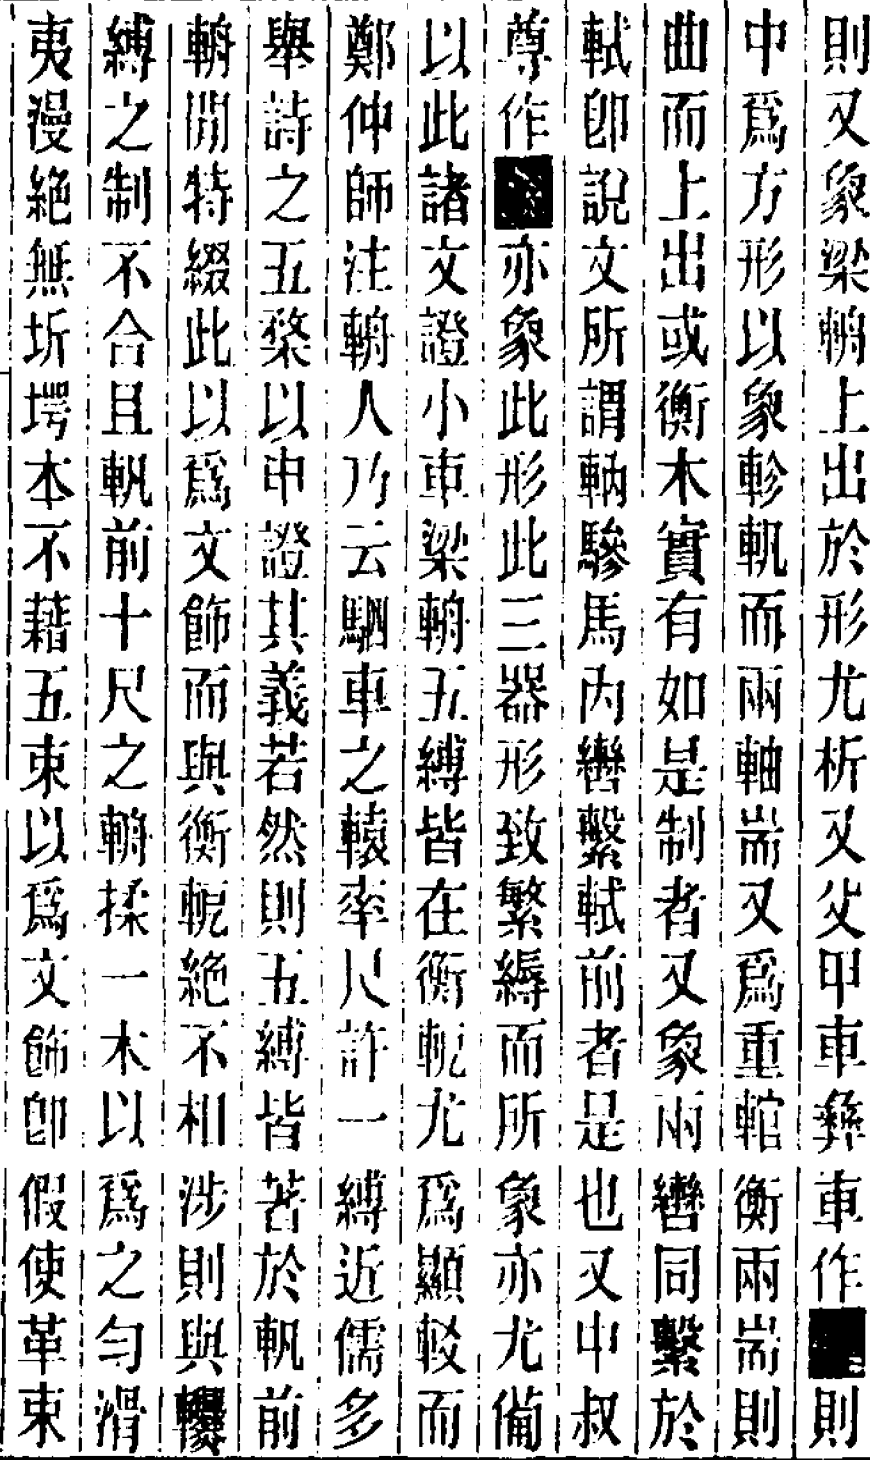 則又象梁輈上出於形尤析又父甲車彝車作則
中爲方形以象軫軓而兩軸耑又爲重輨衡兩耑則
曲而上出或衡木實有如是制者又象兩轡同繫於
軾卽說文所謂軜驂馬內轡繫軾前者是也又中叔
尊作亦象此形此三器形致繁縟而所象亦尤備
以此諸文證小車梁輈五縛皆在衡軶尤爲顯較而
鄭仲師注輈人乃云駟車之轅率尺許一縛近儒多
舉詩之五楘以申證其義若然則五縛皆著於軓前
輈閒特綴此以爲文飾而與衡軶絶不相涉則與轐
縛之制不合且軓前十尺之輈揉一木以爲之勻滑
夷漫絶無圻堮本不藉五束以爲文飾卽假使革束